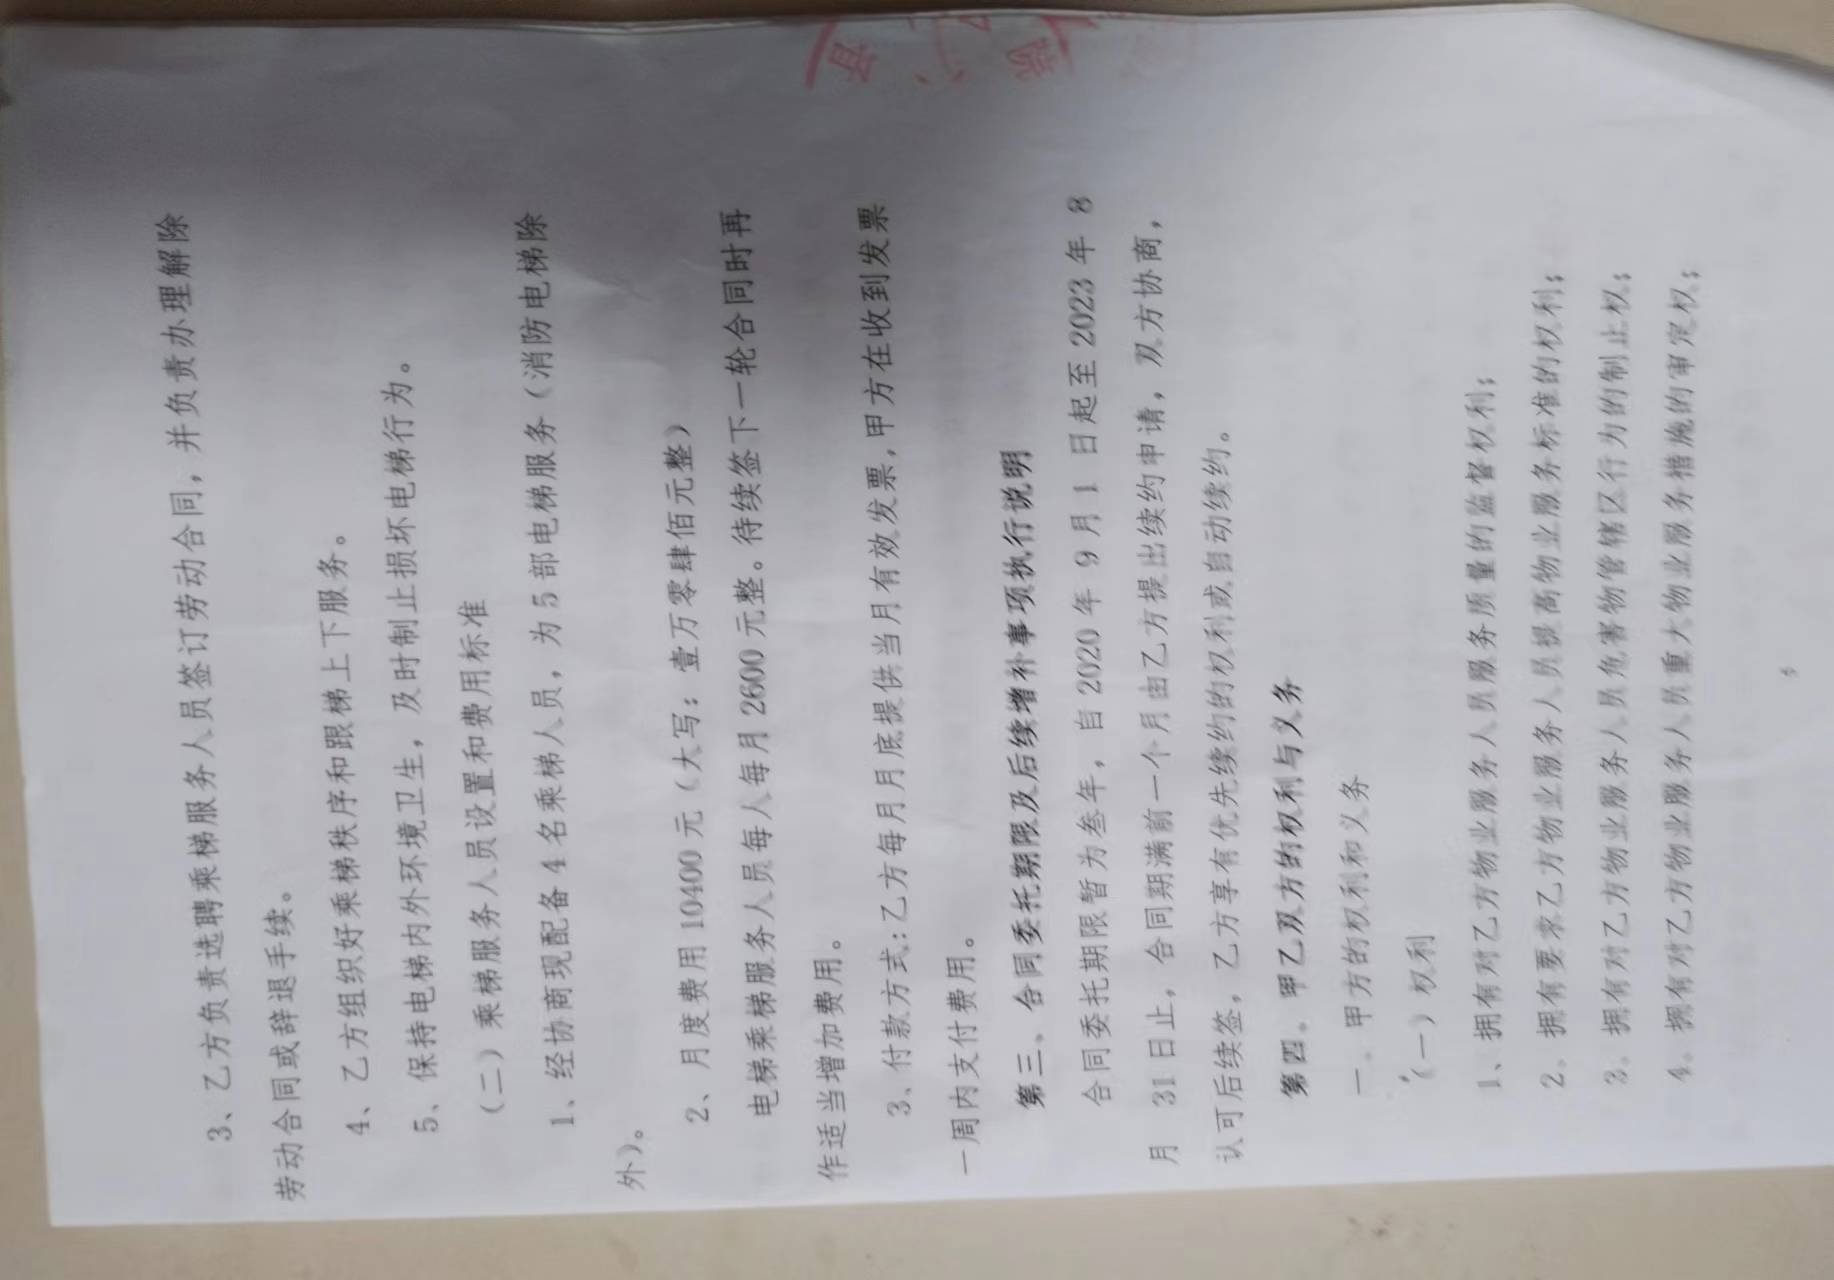 3、乙方负责选聘乘梯服务人员签订劳动合同，并负责办理解除
劳动合同或辞退手续。
4、乙方组织好乘梯秩序和跟梯上下服务。
5、保持电梯内外环境卫生，及时制止损坏电梯行为。
(二）乘梯服务人员设置和费用标准
1、经协商现配备4名乘梯人员，为5部电梯服务（消防电梯除
外）。
2、月度费用10400元（大写：壹万零肆佰元整）
电梯乘梯服务人员每人每月2600元整。待续签下一轮合同时再
作适当增加费用。
3、付款方式:乙方每月月底提供当月有效发票,甲方在收到发票
一周内支付费用。
第三、合同委托期限及后续增补事项执行说明
合同委托期限暂为叁年，自2020年9月1日起至2023年8
月31日止，合同期满前一个月由乙方提出续约申请，双方协商，
认可后续签，乙方享有优先续约的权利或自动续约。
第四、甲乙双方的权利与义务
一、甲方的权利和义务
（一）权利
1、拥有对乙方物业服务人员服务质量的监督权利；
2、拥有要求乙方物业服务人员提高物业服务标准的权利；
3、拥有对乙方物业服务人员危害物管辖区行为的制止权；
4、拥有对乙方物业服务人员重大物业服务措施的审定权；
县